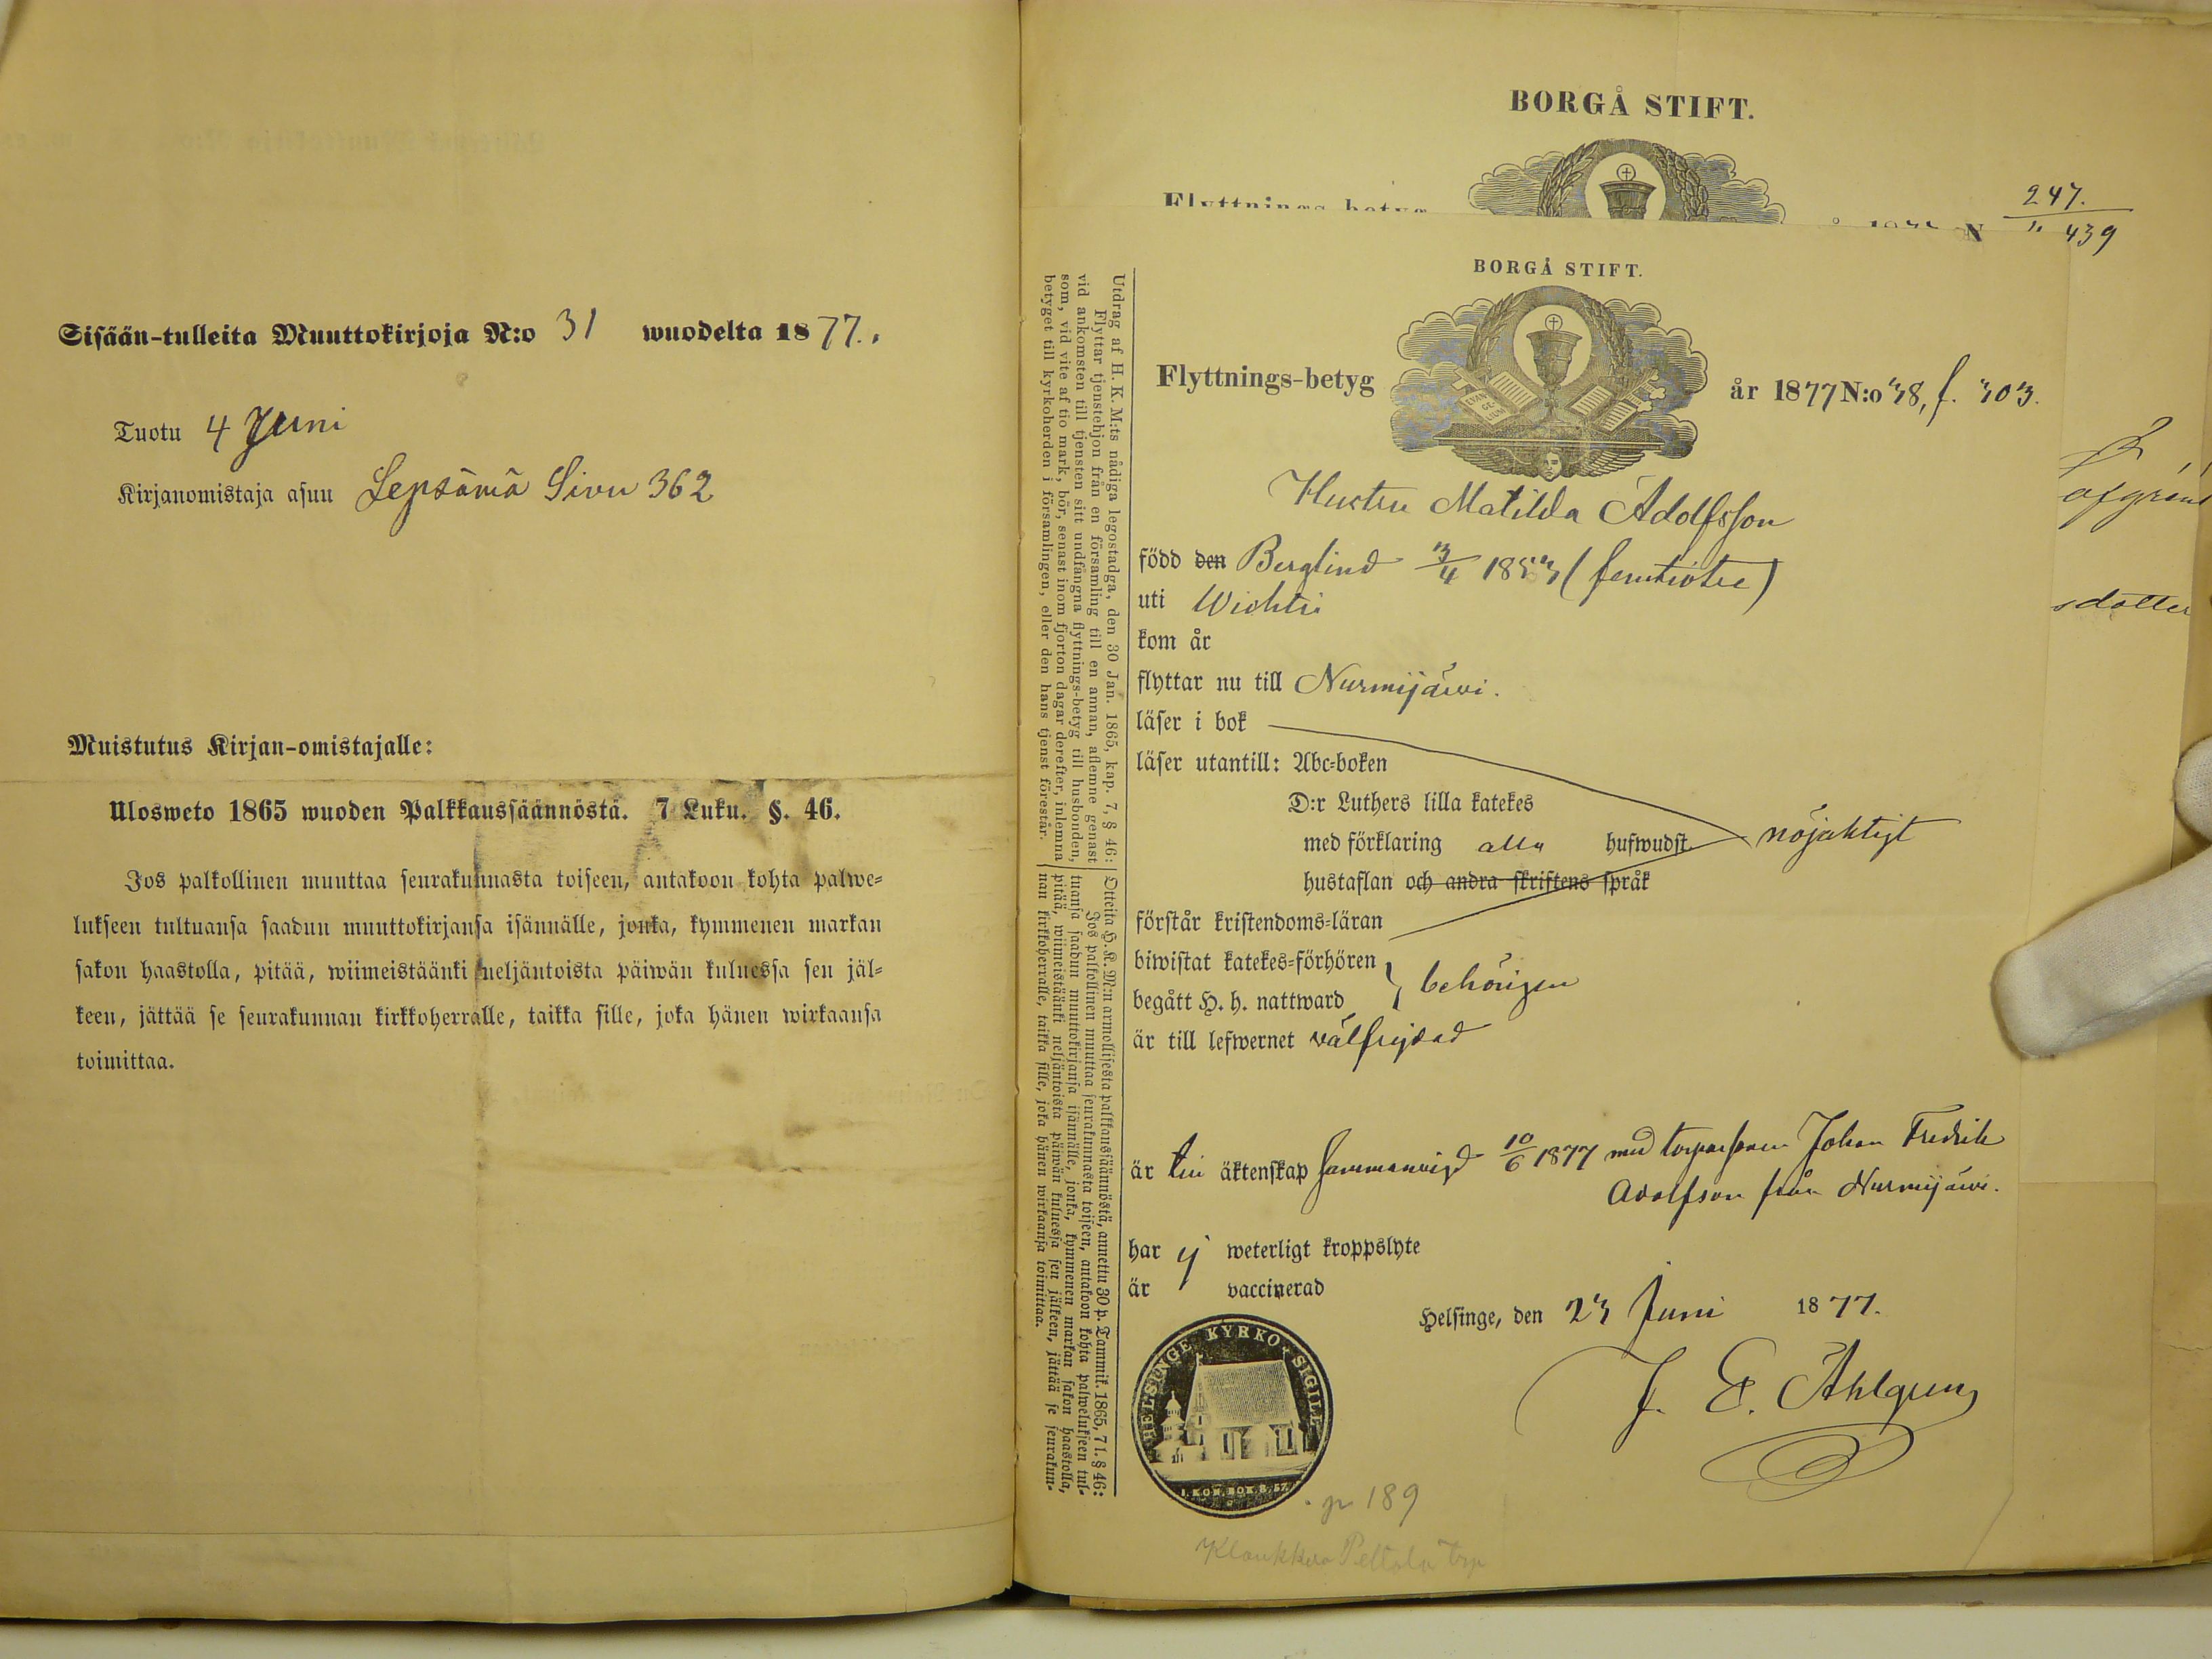 Sisään-tulleita Muuttokirjoja N:o 31 wuodelta 1877.
Tuotu 4 Juni
Kirjanomistaja asuu Lepsämä Sivu 362
Muistutus Kirjan-omistajalle:
Ulosweto 1865 wuoden Palkkaussäännöstä. 7 Luku. §. 46.
Jos palkollinen muuttaa seurakunnasta toiseen, antakoon kohta palwe-
lukseen tultuansa saadun muuttokirjansa isännälle, jonka, kymmenen markan
sakon haastolla, pitää, wiimeistäänki neljäntoista päiwän kuluessa sen jäl-
keen, jättää se seurakunnan kirkkoherralle, taikka sille, joka hänen wirkaansa
toimittaa.
BORGÅ STIFT.
Flyttnings-betyg
247.
" 439
BORGÅ STIFT.
Flyttnings-betyg år 1877 N:o 38, f. 303.
EVAN
GE-
LIUM
Hustru Matilda Adolfsson
född den Berglind 3/4 1853 (femtiotre)
uti Wichtis
kom år
flyttar nu till Nurmijärvi.
läser i bok
läser utantill: Abc-boken
D:r Luthers lilla katekes
med förklaring alla hufwudst. nöjaktigt
hustaflan och andra skriftens språk
förstår kristendoms-läran
biwistat katekes-förhören
begått H. h. nattward } behörigen
är till lefwernet välfrejdad
är till äktenskap sammanvigd 10/6 1877 med torparsonen Johan Fredrik
Adolfson från Nurmijärvi.
har ej weterligt kroppslyte
är vaccinerad
Helsinge, den 23 Juni 1877.
J. E. Ahlgren
HELSINGE KYRKO SIGILL
I. KON. BOK. 8. 57.
p 189
Klaukkala Peltola trp
Utdrag af H. K. M:ts nådiga legostadga, den 30 Jan. 1865, kap. 7, § 46:
Flyttar tjenstehjon från en församling till en annan, aflemne genast
vid ankomsten till tjensten sitt undfångna flyttnings-betyg till husbonden,
som, vid vite af tio mark, bör, senast inom fjorton dagar derefter, inlemna
betyget till kyrkoherden i församlingen, eller den hans tjenst förestår.
Otteita H. K. M:n armollisesta palkkaussäännöstä, annettu 30 p. Tammik. 1865, 7 l. § 46:
Jos palkollinen muuttaa seurakunnasta toiseen, antakoon kohta palwelukseen tul-
tuansa saadun muuttokirjansa isännälle, jonka, kymmenen markan sakon haastolla,
pitää, wiimeistäänki neljäntoista päiwän kuluessa sen jälkeen, jättää se seurakun-
nan kirkkoherralle, taikka sille, joka hänen wirkaansa toimittaa.